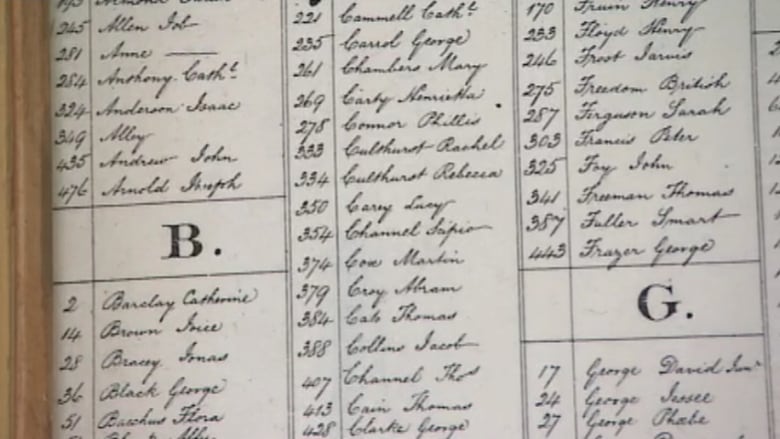 245 Allen Job
281 Anne
284 Anthony Casht.
324 Anderson Isaac
349 Alley
435 Andrew John
476 Arnold Joseph
B.
2 Barclay Catherine
14 Brown Joice
28 Bracey Jonas
36 Black George
51 Bacchus Flora
221 Cammell Casht.
235 Carrol George
261 Chambers Mary
269 Carty Henrietta
278 Connor Phillis
333 Culthurst Rachel
334 Culthurst Rebecca
350 Carey Lucy
354 Channel Scipio
374 Cox Martin
379 Croy Abram
384 Cato Thomas
388 Collins Jacob
407 Channel Thos
413 Cain Thomas
428 Clarke George
170 Fruin Henry
233 Floyd Henry
246 Frost Jarvis
275 Freedom British
287 Ferguson Sarah
303 Francis Peter
325 Foy John
341 Freeman Thomas
387 Fuller Smart
443 Frazer George
G.
17 George David Junr
24 George Jessee
27 George Phœbe